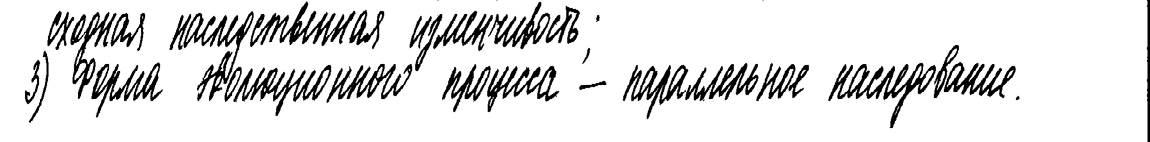 сходная наследственная изменчивость;
3) Форма эволюционного процесса – параллельное наследование.